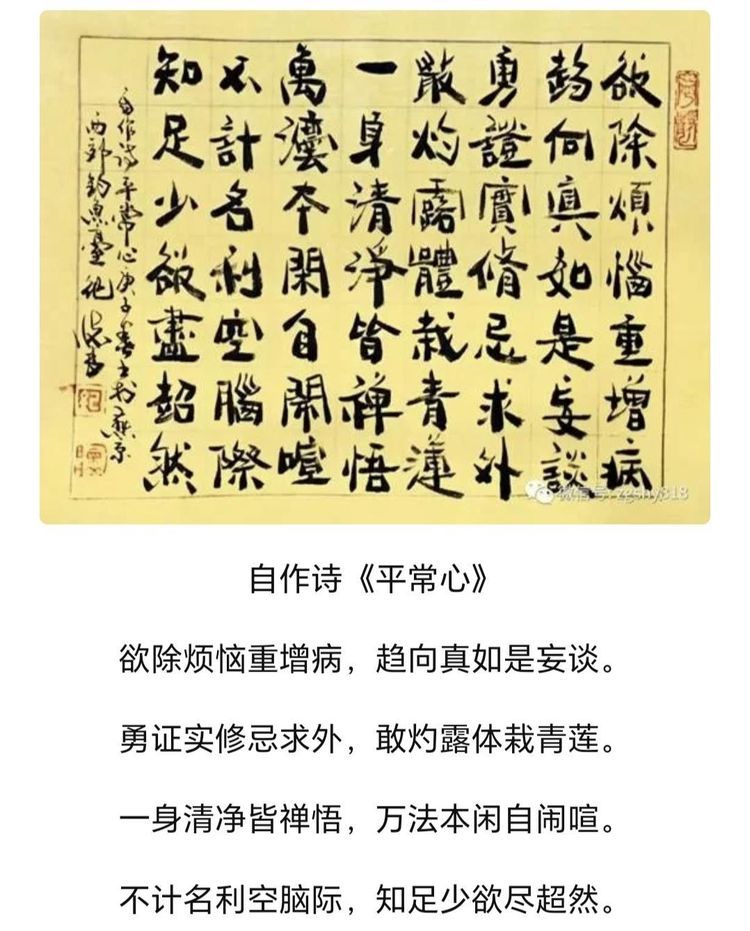 欲除煩惱重增病
趍向眞如是妄談
勇證實脩忌求外
敢灼露體栽青蓮
一身清淨皆禪悟
萬灋本閑自鬧喧
不計名利空腦際
知足少欲盡超然
自作诗平常心庚子春书於燕京
西郊釣魚臺
微信号: zgshy318
自作诗《平常心》
欲除烦恼重增病，趋向真如是妄谈。
勇证实修忌求外，敢灼露体栽青莲。
一身清净皆禅悟，万法本闲自闹喧。
不计名利空脑际，知足少欲尽超然。